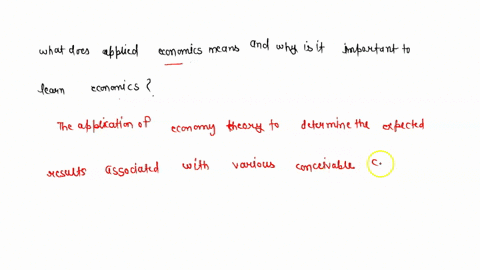 what does applied economics means and why is it important to
learn economics?
The application of economy theory to determine the expected
results associated with various conceivable c.